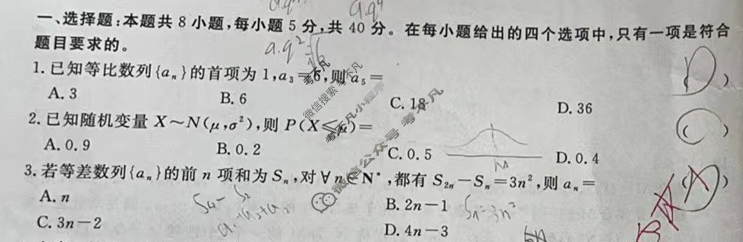 一、选择题:本题共 8 小题,每小题 5 分,共 40 分。在每小题给出的四个选项中,只有一项是符合
题目要求的。
1. 已知等比数列{aₙ}的首项为 1,a₃=6,则 a₅=
A. 3 B. 6 C. 18 D. 36
D
2. 已知随机变量 X～N(μ,σ²),则 P(X≤μ)=
A. 0.9 B. 0.2 C. 0.5 D. 0.4
C
3. 若等差数列{aₙ}的前 n 项和为 Sₙ,对∀n∈N*,都有 S₂ₙ-Sₙ=3n²,则 aₙ=
A. n B. 2n-1
C. 3n-2 D. 4n-3
微信搜索 考不凡
考不凡小程序
微信公众号 考不凡